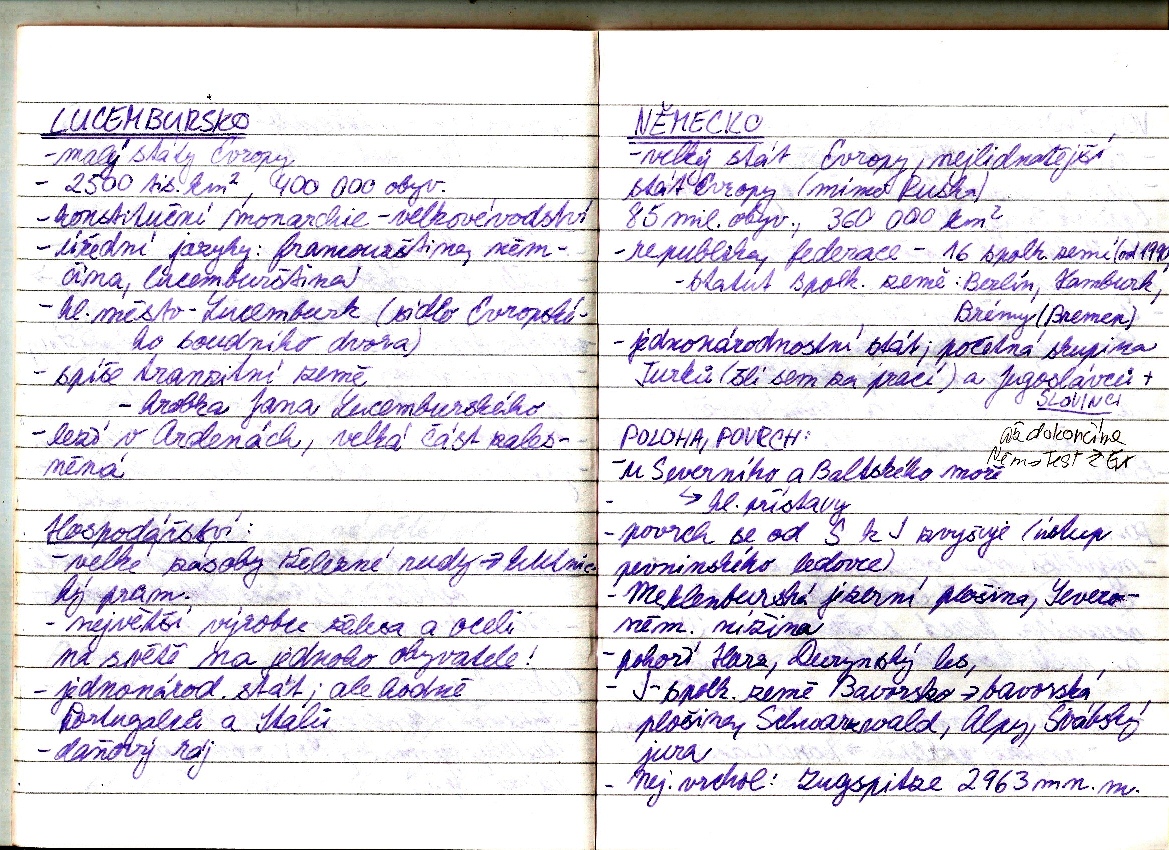 LUCEMBURSKO
- malý státy Evropy
- 2500 tis. km², 400 000 obyv.
- konstituční monarchie - velkovévodství
- úřední jazyky: francouzština, něm-
čina, lucemburština
- hl. město - Lucemburk (sídlo Evropské-
ho soudního dvora)
- spíše tranzitní země
- hrobka Jana Lucemburského
- leží v Ardenách, velká část zales-
něná
Hospodářství:
- velké zásoby železné rudy → hutnic-
ký prům.
- největší výrobce železa a oceli
na světě na jednoho obyvatele!
- jednonárod. stát; ale hodně
Portugalců a Italů
- daňový ráj
NĚMECKO
- velký stát Evropy, nejlidnatější
stát Evropy (mimo Ruska)
85 mil. obyv., 360 000 km²
- republika, federace - 16 spolk. zemí (od 1990
- statut spolk. země: Berlín, Hamburk,
Brémy (Bremen)
- jednonárodnostní stát; početná skupina
Turků (šli sem za prací) a Jugoslávců +
SLOVINCI
POLOHA, POVRCH:
až dokončíme
Něm test z
- u Severního a Baltského moře
- ↳ hl. přístavy
- povrch se od S k J zvyšuje (ústup
pevninského ledovce)
- Meklenburská jezerní plošina, Severo-
něm. nížina
- pohoří Harz, Durynský les,
- J - spolk. země Bavorsko → bavorská
plošina, Schwarzwald, Alpy, Švábský
jura
- nej. vrchol: Zugspitze 2963 m n. m.